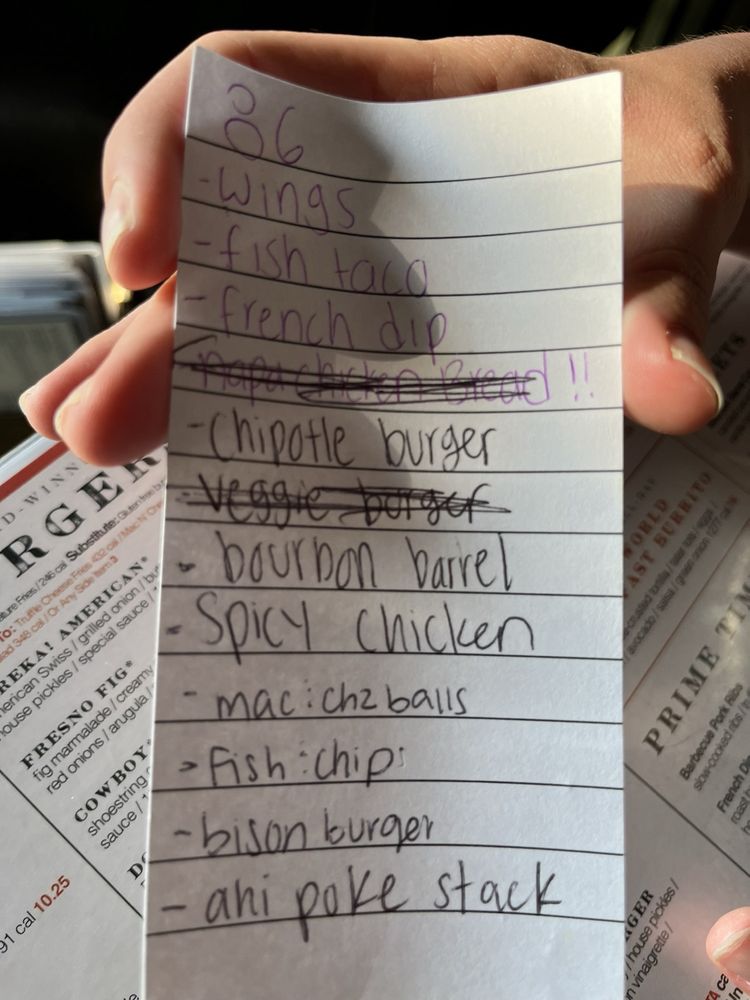 86
- wings
- fish taco
- french dip
- napa chicken Bread !!
- Chipotle burger
- veggie burger
- bourbon barrel
- Spicy Chicken
- mac : chz balls
- Fish : chips
- bison burger
- ahi poke stack
D-WINN
RGER
Substitute: Gluten free
Truffle Cheese Fries 432 cal / Mac N' Che
348 cal / Or Any Side Item 3
EREKA! AMERICAN*
American Swiss / grilled onion /
house pickles / special sauce /
FRESNO FIG*
fig marmalade / creamy
red onions / arugula /
COWBOY*
shoestring
sauce /
91 cal 10.25
WORLD
AST BURRITO
avocado / salsa / green onion
PRIME TIM
Barbecue Pork Ribs
slow-cooked ribs /
French Di
roast
GER
/ house pickles /
n vinaigrette /